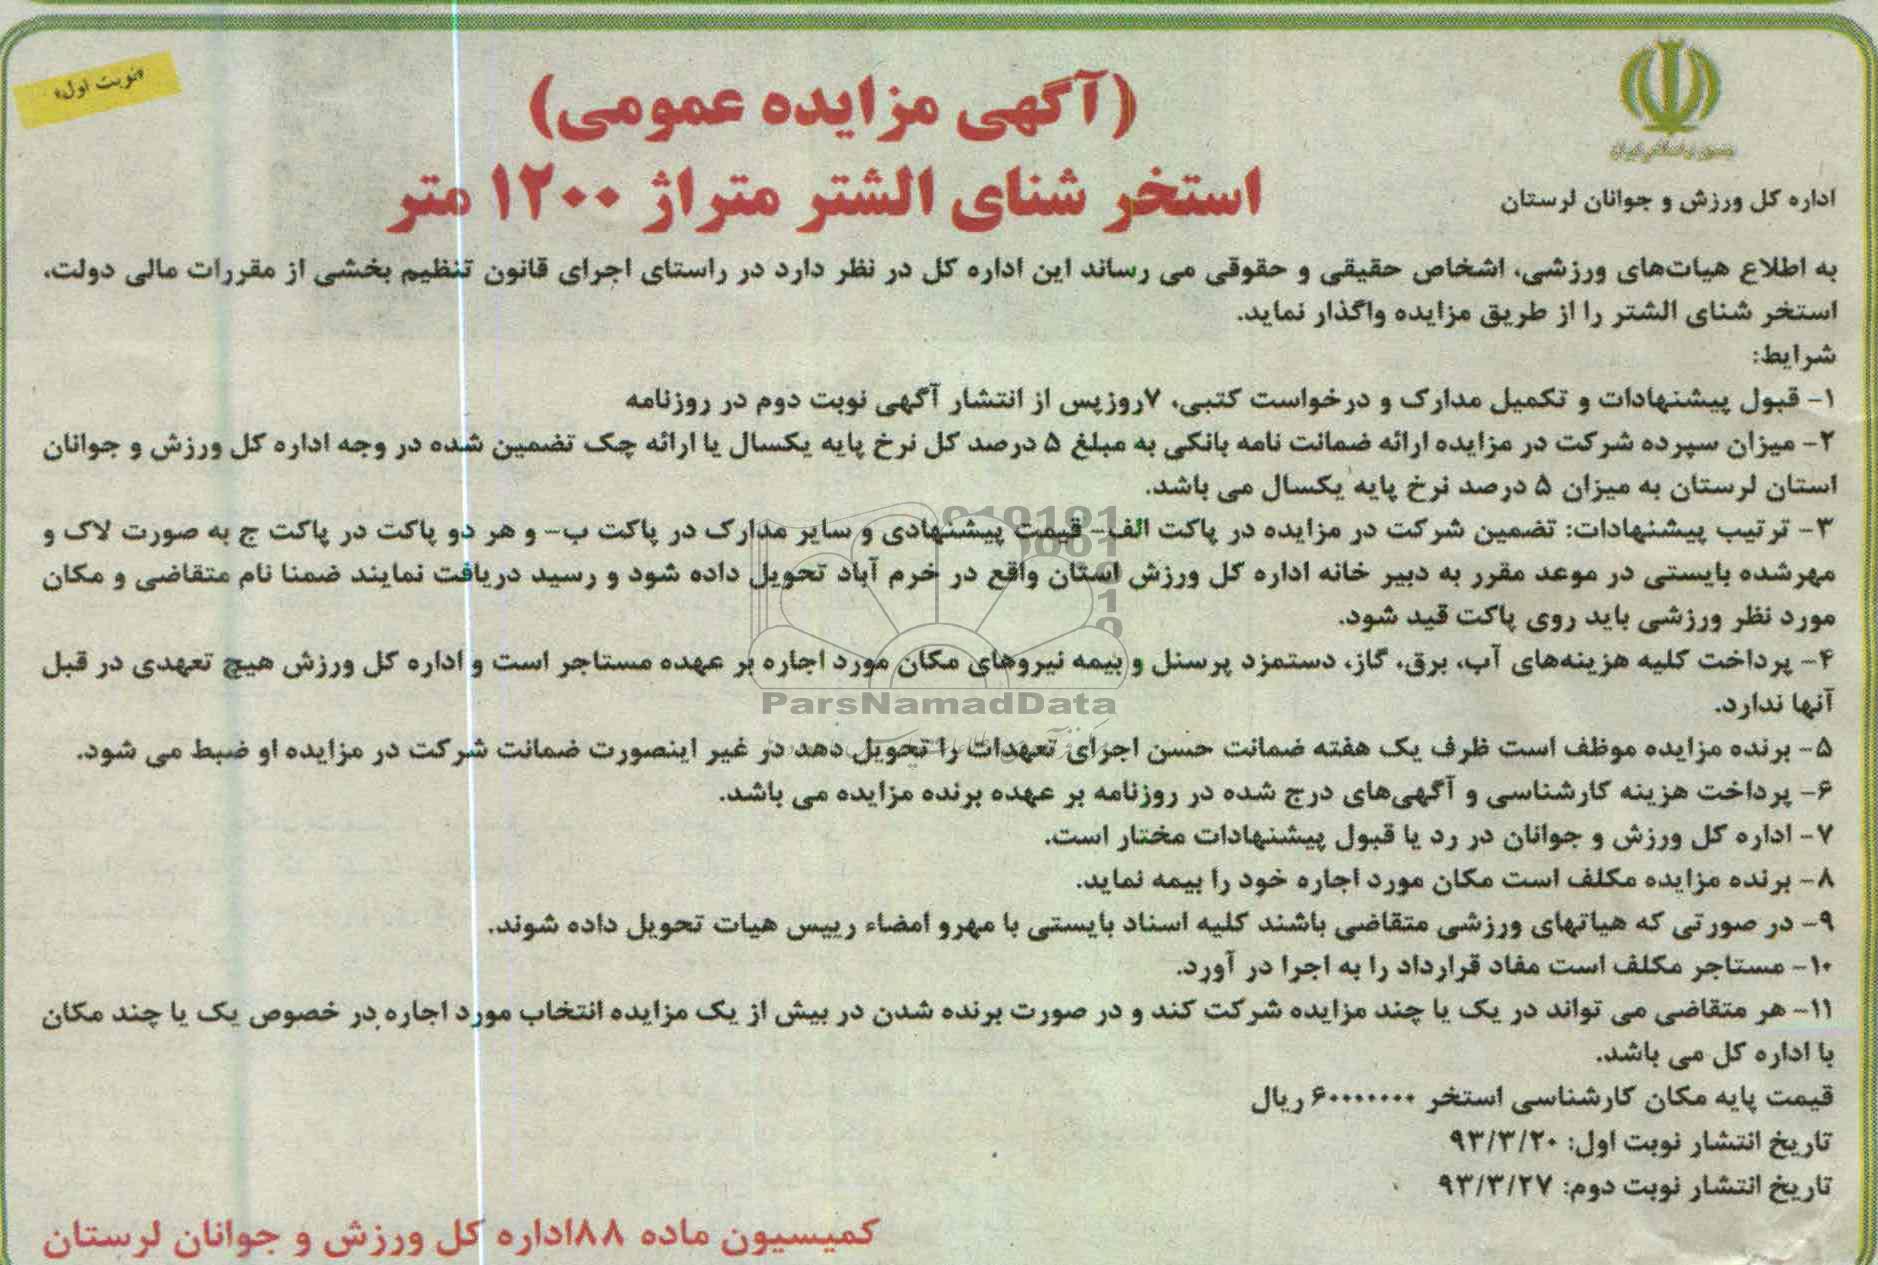 «نوبت اول»
(آگهی مزایده عمومی)
استخر شنای الشتر متراژ ۱۲۰۰ متر
اداره کل ورزش و جوانان لرستان
به اطلاع هیات‌های ورزشی، اشخاص حقیقی و حقوقی می رساند این اداره کل در نظر دارد در راستای اجرای قانون تنظیم بخشی از مقررات مالی دولت،
استخر شنای الشتر را از طریق مزایده واگذار نماید.
شرایط:
۱- قبول پیشنهادات و تکمیل مدارک و درخواست کتبی، ۷روزپس از انتشار آگهی نوبت دوم در روزنامه
۲- میزان سپرده شرکت در مزایده ارائه ضمانت نامه بانکی به مبلغ ۵ درصد کل نرخ پایه یکسال یا ارائه چک تضمین شده در وجه اداره کل ورزش و جوانان
استان لرستان به میزان ۵ درصد نرخ پایه یکسال می باشد.
۳- ترتیب پیشنهادات: تضمین شرکت در مزایده در پاکت الف- قیمت پیشنهادی و سایر مدارک در پاکت ب- و هر دو پاکت در پاکت ج به صورت لاک و
مهرشده بایستی در موعد مقرر به دبیر خانه اداره کل ورزش استان واقع در خرم آباد تحویل داده شود و رسید دریافت نمایند ضمنا نام متقاضی و مکان
مورد نظر ورزشی باید روی پاکت قید شود.
۴- پرداخت کلیه هزینه‌های آب، برق، گاز، دستمزد پرسنل و بیمه نیروهای مکان مورد اجاره بر عهده مستاجر است و اداره کل ورزش هیچ تعهدی در قبل
آنها ندارد.
ParsNamadData
۵- برنده مزایده موظف است ظرف یک هفته ضمانت حسن اجرای تعهدات را تحویل دهد در غیر اینصورت ضمانت شرکت در مزایده او ضبط می شود.
۶- پرداخت هزینه کارشناسی و آگهی‌های درج شده در روزنامه بر عهده برنده مزایده می باشد.
۷- اداره کل ورزش و جوانان در رد یا قبول پیشنهادات مختار است.
۸- برنده مزایده مکلف است مکان مورد اجاره خود را بیمه نماید.
۹- در صورتی که هیاتهای ورزشی متقاضی باشند کلیه اسناد بایستی با مهرو امضاء رییس هیات تحویل داده شوند.
۱۰- مستاجر مکلف است مفاد قرارداد را به اجرا در آورد.
۱۱- هر متقاضی می تواند در یک یا چند مزایده شرکت کند و در صورت برنده شدن در بیش از یک مزایده انتخاب مورد اجاره در خصوص یک یا چند مکان
با اداره کل می باشد.
قیمت پایه مکان کارشناسی استخر ۶۰۰۰۰۰۰۰ ریال
تاریخ انتشار نوبت اول: ۹۳/۳/۲۰
تاریخ انتشار نوبت دوم: ۹۳/۳/۲۷
کمیسیون ماده ۸۸اداره کل ورزش و جوانان لرستان